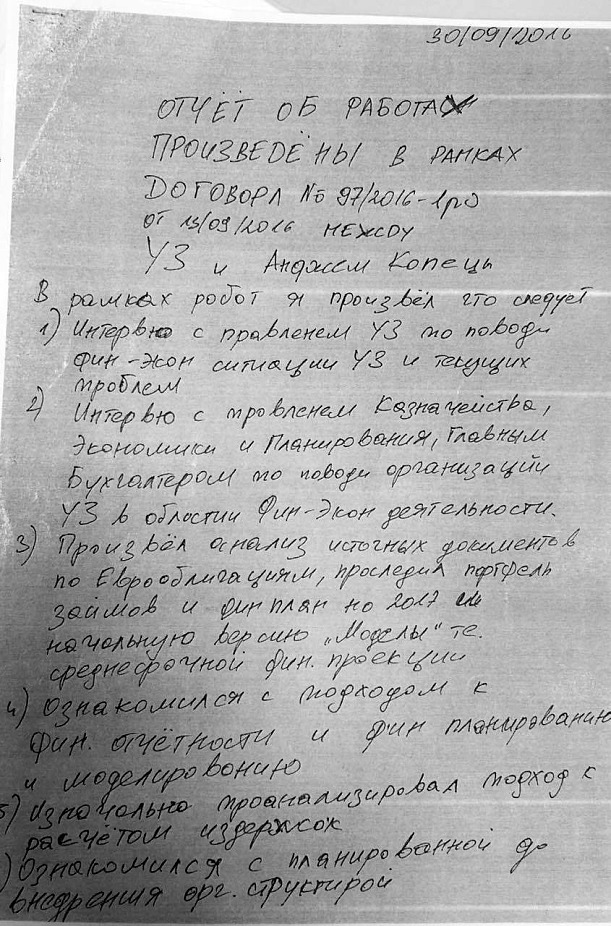 30/09/2016
ОТЧЁТ ОБ РАБОТАХ
ПРОИЗВЕДЁНЫ В РАМКАХ
ДОГОВОРА № 97/2016-
ОТ 13/09/2016 МЕЖДУ
УЗ и Анджем Копець
В рамках робот я произвёл что следует
1) Интервю с правленем УЗ по поводи
фин-экон ситиации УЗ и текущих
проблем
2) Интервю с провленем Казначейства,
Экономики и Планирования, Главным
Бухгалтером по поводи организаций
УЗ в областии Фин-Экон деятельности.
3) Произвёл анализ источных документов
по Еврооблигациям, проследил портфель
займов и фин план но 2017
начальную версию „Моделы" те.
среднесрочной фин. проекции
4) Ознакомился с подходом к
фин. отчётности и фин планированию
и моделированию
5) Изначально проанализировал подход к
расчётом издержок
) Ознакомился с планированной до
внедрения орг. структирой